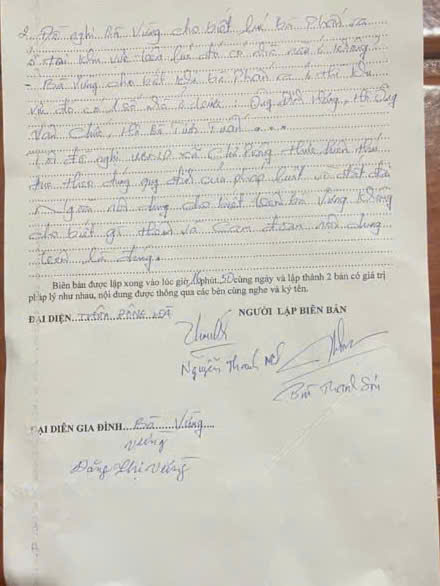 2. Đề nghị Bà Vững cho biết lúc bà Phấn ra
ở tại khu vực trên lúc đó có nhà nào ở không?
- Bà Vững cho biết khi bà Phấn ra ở thì khu
vực đó có 1 số nhà ở trên: Ông Đinh Hùng, Hộ Ông
Văn Chức, Hộ Bà Tuân ....
đề nghị UBND xã thực hiện thủ
tục theo đúng quy định của pháp luật về đất đai
Ngoài nội dung cho biết trên bà Vững không
cho biết gì thêm và Cam đoan nội dung
trên là đúng.
Biên bản được lập xong vào lúc giờ phút 50 cùng ngày và lập thành 2 bản có giá trị
pháp lý như nhau, nội dung được thông qua các bên cùng nghe và ký tên.
ĐẠI DIỆN
NGƯỜI LẬP BIÊN BẢN
Nguyễn Thanh
Bùi Thanh Sơn
ĐẠI DIỆN GIA ĐÌNH....Bà.....Vững....
Vững
Đặng Thị Vững